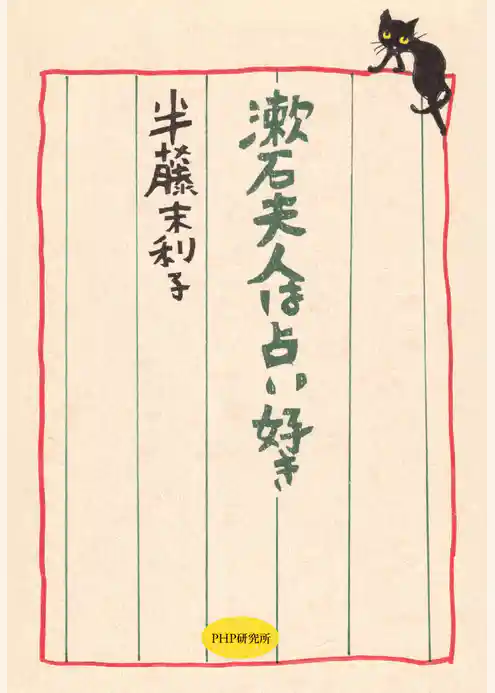 漱石夫人は占い好き
半藤末利子
PHP研究所